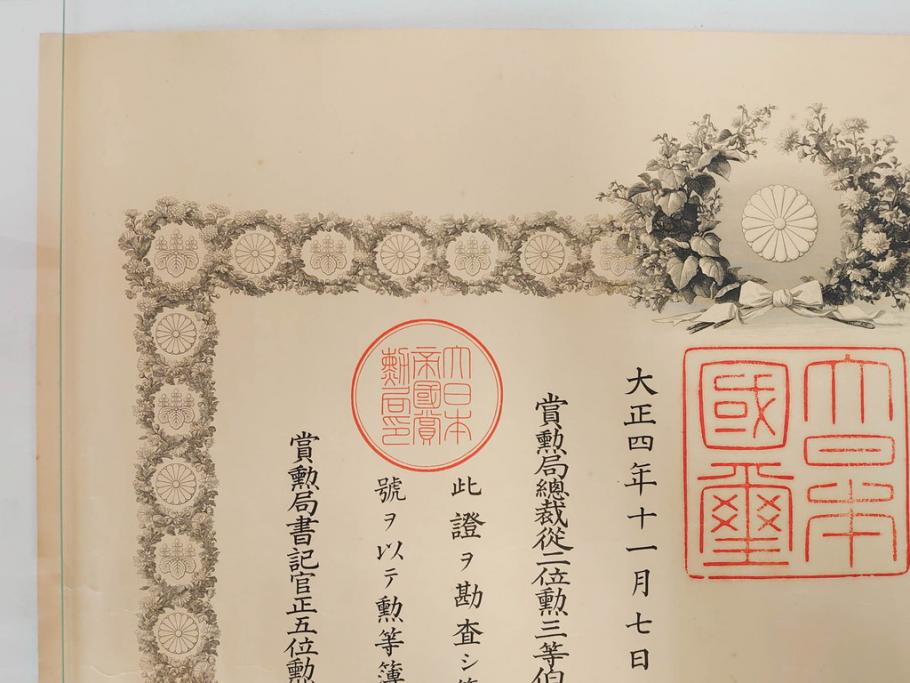 大日本國璽
大正四年十一月七日
賞勲局總裁從二位勲三等伯
大日本帝國賞勲局印
此證ヲ勘査シ第
號ヲ以テ勲等簿
賞勲局書記官正五位勲